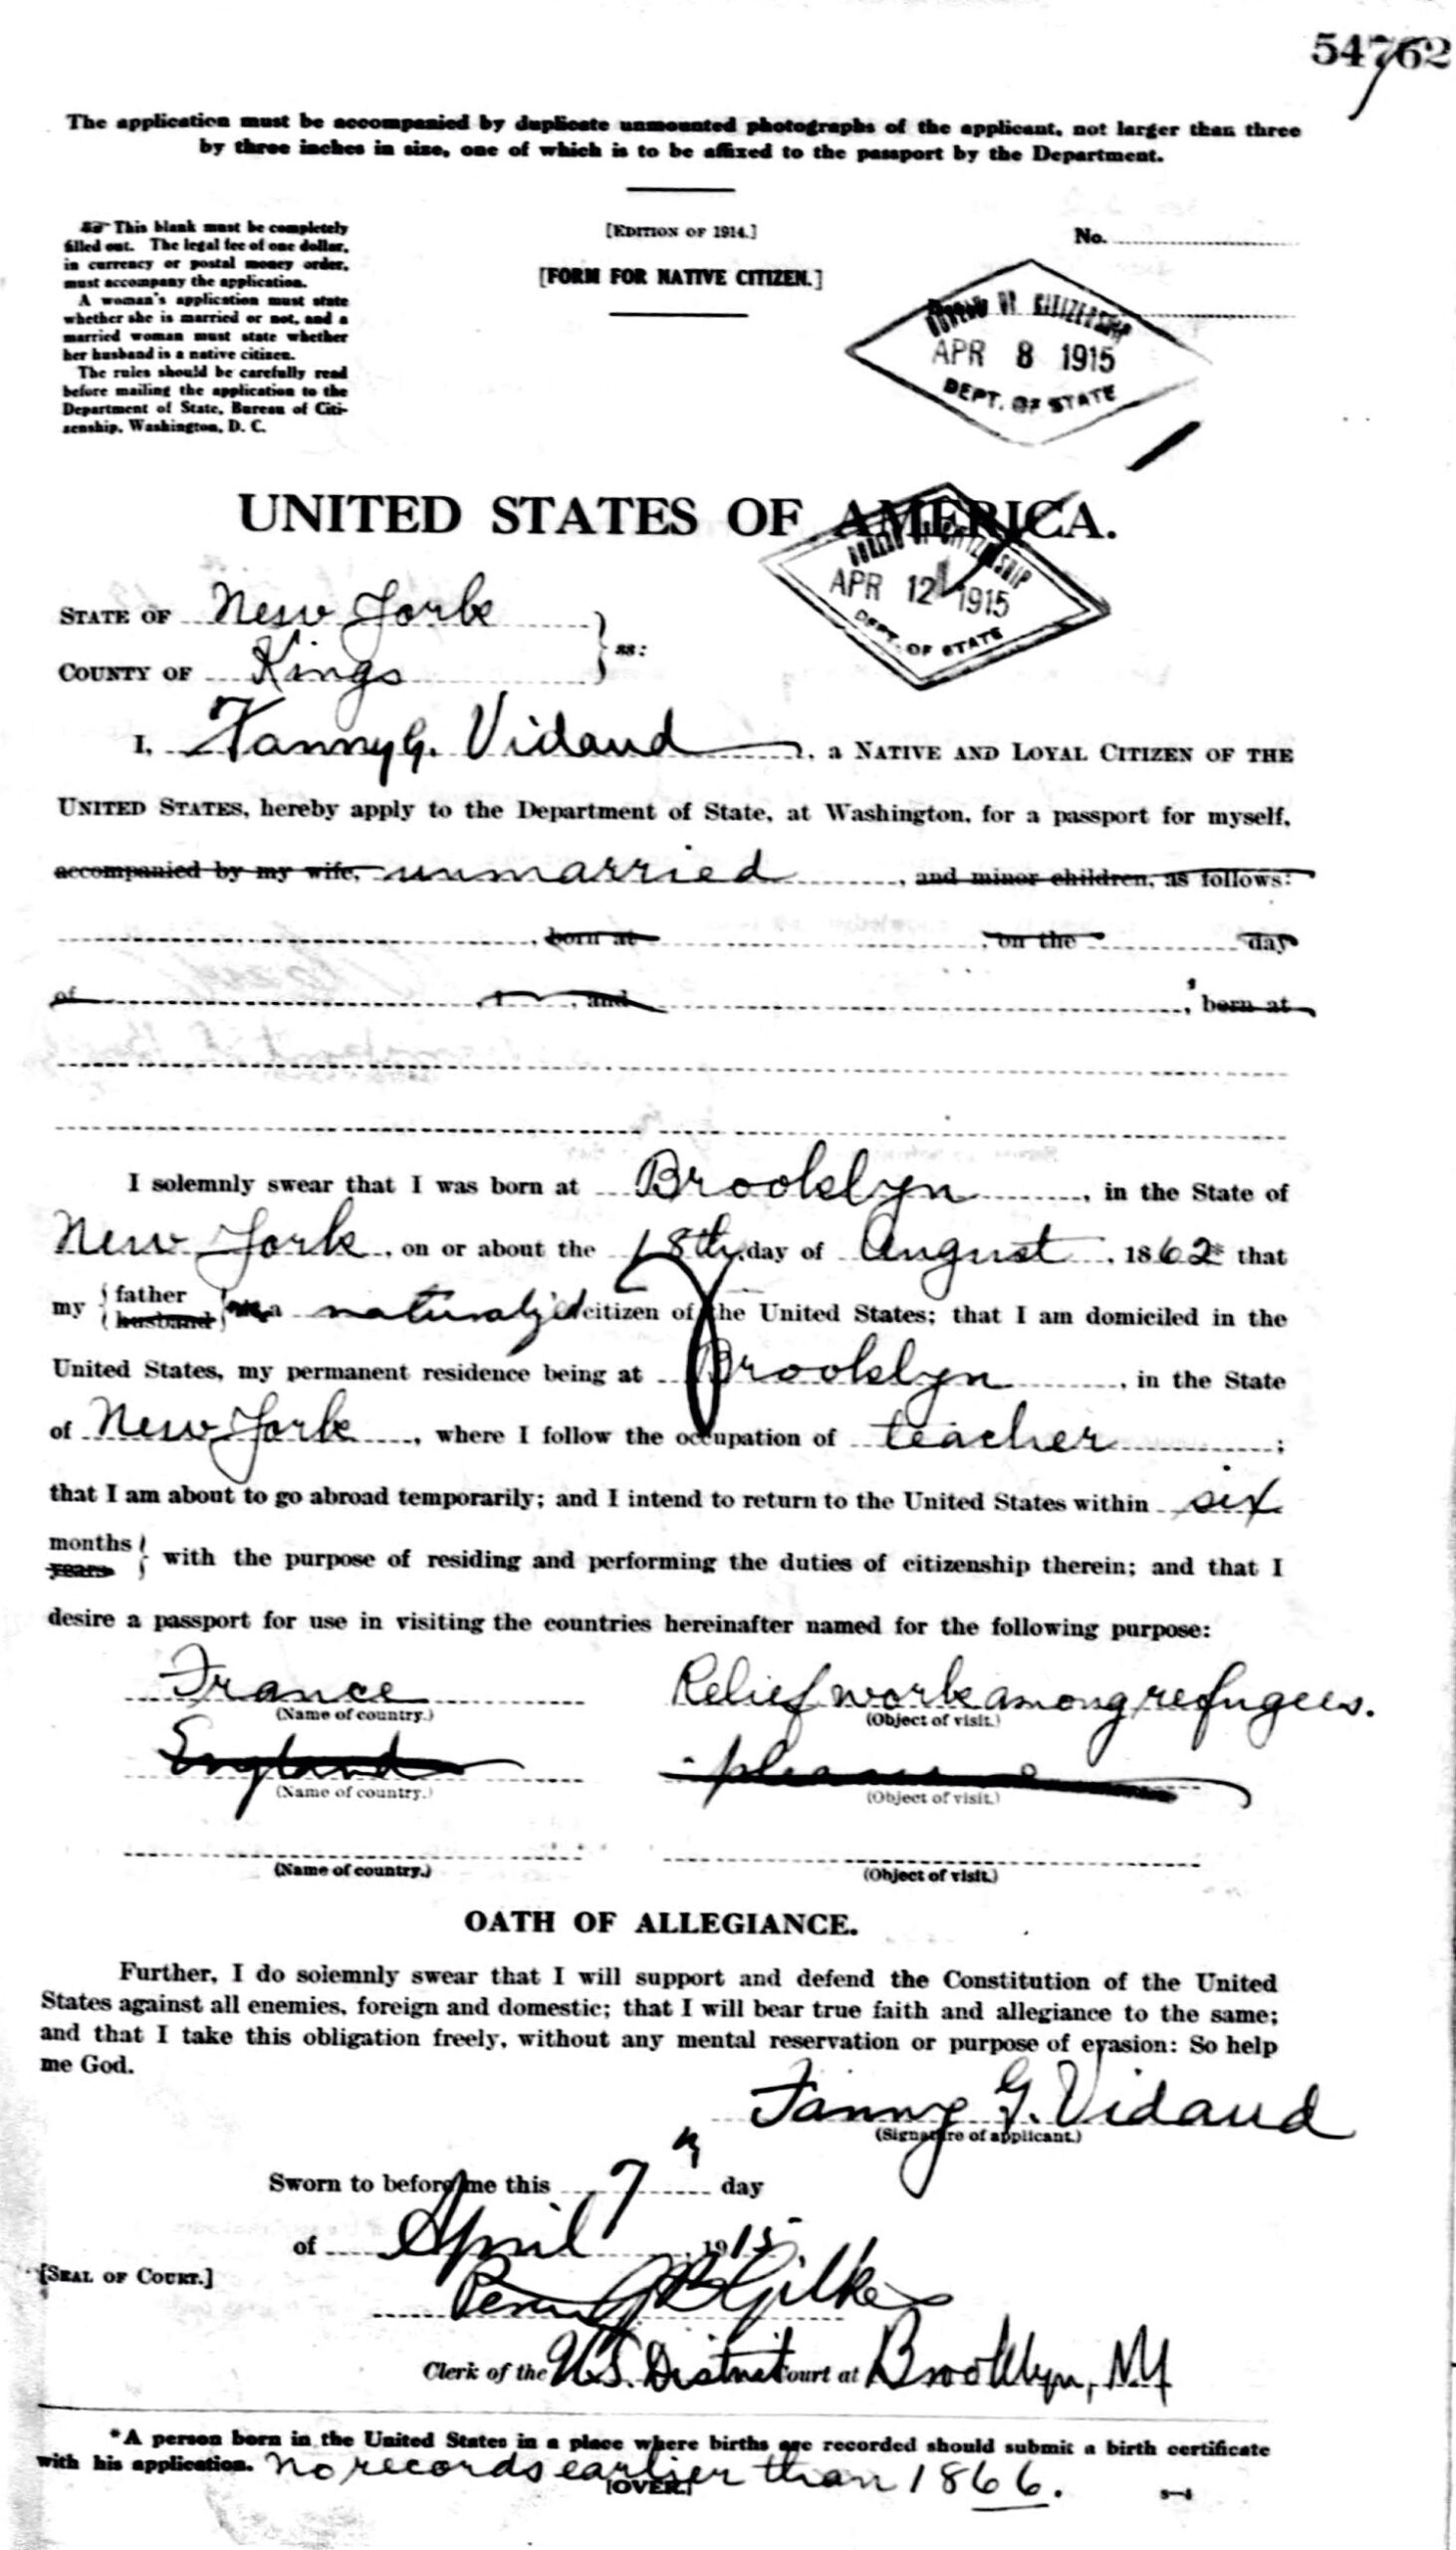 54762
The application must be accompanied by duplicate unmounted photographs of the applicant, not larger than three
by three inches in size, one of which is to be affixed to the passport by the Department.
This blank must be completely
filled out. The legal fee of one dollar,
in currency or postal money order,
must accompany the application.
A woman's application must state
whether she is married or not, and a
married woman must state whether
her husband is a native citizen.
The rules should be carefully read
before mailing the application to the
Department of State, Bureau of Citi-
zenship, Washington, D. C.
[EDITION OF 1914.]
[FORM FOR NATIVE CITIZEN.]
No.
BUREAU OF CITIZENSHIP
APR 8 1915
DEPT. OF STATE
UNITED STATES OF AMERICA.
BUREAU OF CITIZENSHIP
APR 12 1915
DEPT. OF STATE
STATE OF New York
COUNTY OF Kings
ss:
I, Fanny G. Vidaud, a NATIVE AND LOYAL CITIZEN OF THE
UNITED STATES, hereby apply to the Department of State, at Washington, for a passport for myself,
accompanied by my wife, unmarried, and minor children, as follows:
, born at , on the day
of , 1 , and , born at
I solemnly swear that I was born at Brooklyn, in the State of
New York, on or about the 18th day of August, 1862* that
my { father husband } a naturaliz'd citizen of the United States; that I am domiciled in the
United States, my permanent residence being at Brooklyn, in the State
of New York, where I follow the occupation of teacher;
that I am about to go abroad temporarily; and I intend to return to the United States within six
months years } with the purpose of residing and performing the duties of citizenship therein; and that I
desire a passport for use in visiting the countries hereinafter named for the following purpose:
France Relief work among refugees.
(Name of country.) (Object of visit.)
England pleasure
(Name of country.) (Object of visit.)
(Name of country.) (Object of visit.)
OATH OF ALLEGIANCE.
Further, I do solemnly swear that I will support and defend the Constitution of the United
States against all enemies, foreign and domestic; that I will bear true faith and allegiance to the same;
and that I take this obligation freely, without any mental reservation or purpose of evasion: So help
me God.
Fanny G. Vidaud
(Signature of applicant.)
Sworn to before me this 7th day
of April, 1915
[SEAL OF COURT.]
Percy G B Gilkes
Clerk of the U.S. District Court at Brooklyn, NY
*A person born in the United States in a place where births are recorded should submit a birth certificate
with his application. No records earlier than 1866.
[OVER.]